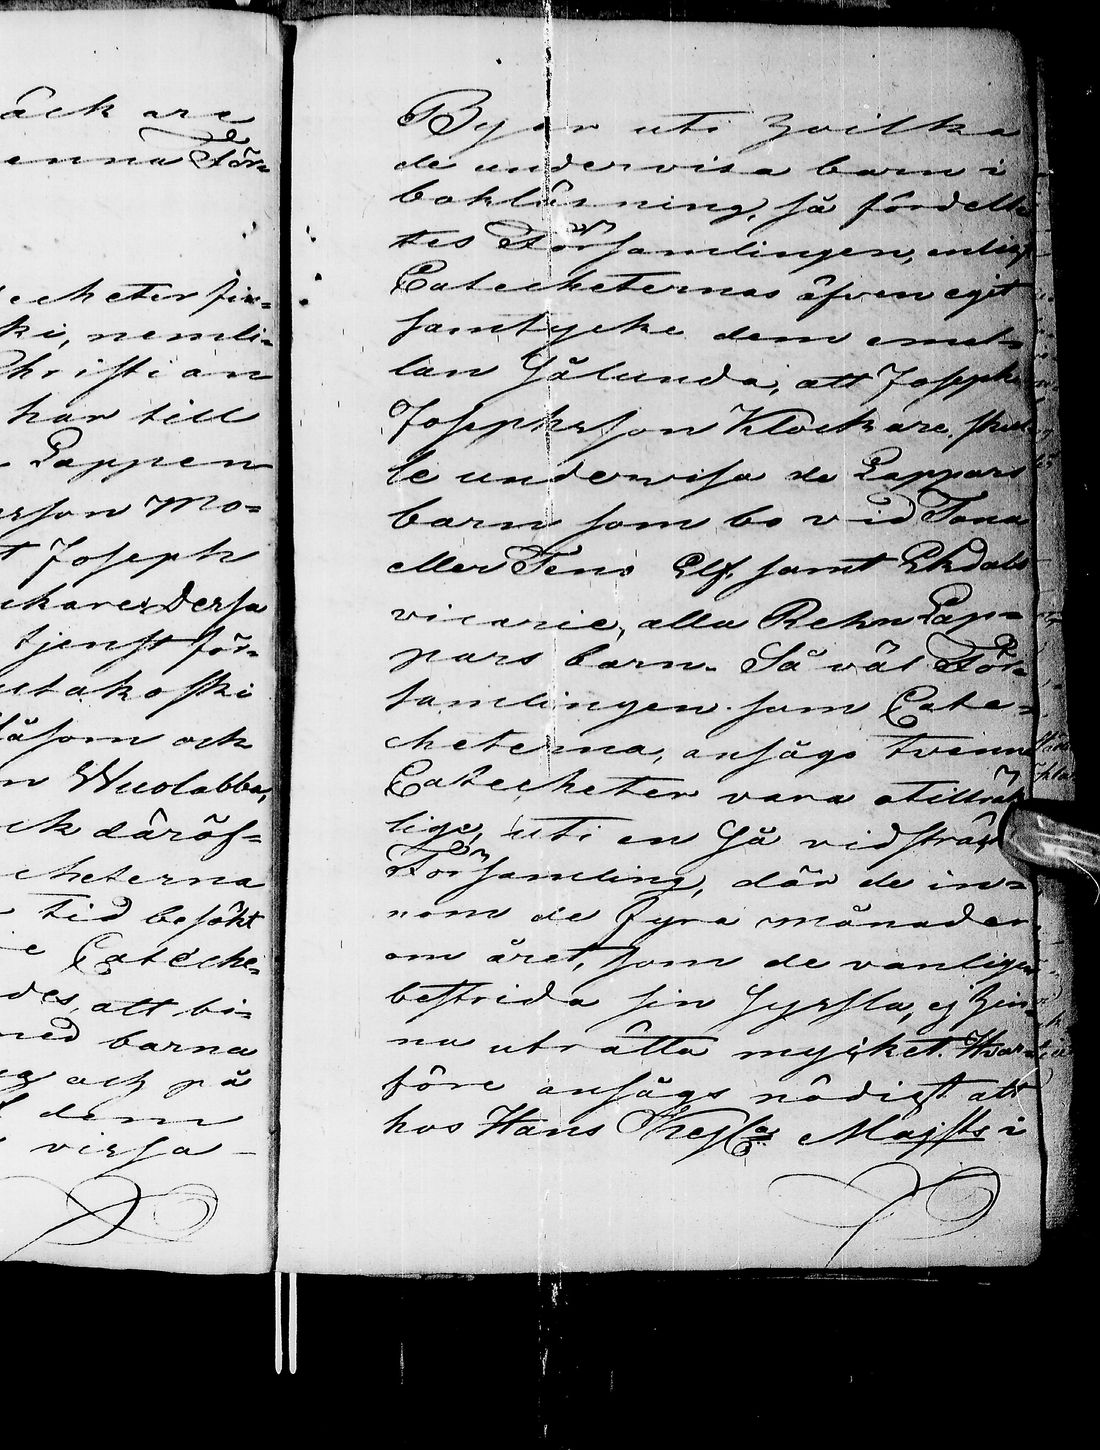 åck are
enna För-
techeter fin-
ki, nemli-
Christian
har till
Lappen
erson Mo-
t Joseph
ckare. Dersa
tjenst för-
utakoski
såsom ock
n Wuolabba,
ck däröf-
cheterna
tid besökt
e Cateche-
des, att bi-
med barna
och på
dem
virsa
Byar uti hvilka
de undervisa barn i
boklärning, så fördelte
tes Församlingen, enligt
Catecheternas äfven eget
samtycke dem emel-
lan sålunda, att Joseph
Josephsson Klockare, skul
le undervisa de Lappars
barn som bo vid Tana
eller Teno Elf, samt Ekdals
vicarie, alla Rehn Lap-
pars barn. Så väl För-
samlingen som Cate-
cheterna, ansågs tvenne
Catecheter vara otillräk
lige, uti en så vidsträkt
Församling, där de in-
nom de fyra månader
om året, som de vanligen
bestrida sin syssla, ej hin-
na uträtta mycket. Hvar-
före ansågs nödigt att
hos Hans Kejsla Majsts i